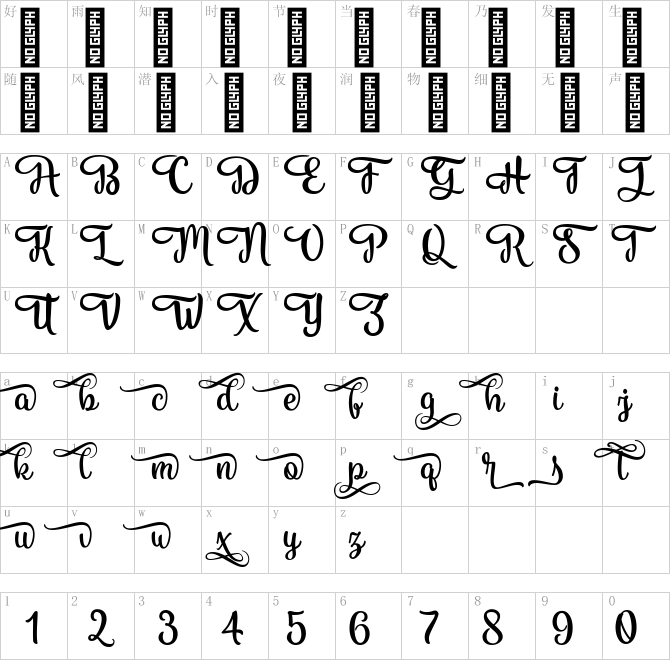 好 雨 知 时 节 当 春 乃 发 生
NO GLYPH NO GLYPH NO GLYPH NO GLYPH NO GLYPH NO GLYPH NO GLYPH NO GLYPH NO GLYPH NO GLYPH
随 风 潜 入 夜 润 物 细 无 声
NO GLYPH NO GLYPH NO GLYPH NO GLYPH NO GLYPH NO GLYPH NO GLYPH NO GLYPH NO GLYPH NO GLYPH
A B C D E F G H I J
A B C D E F G H I J
K L M N O P Q R S T
K L M N O P Q R S T
U V W X Y Z
U V W X Y Z
a b c d e f g h i j
a b c d e f g h i j
k l m n o p q r s t
k l m n o p q r s t
u v w x y z
u v w x y z
1 2 3 4 5 6 7 8 9 0
1 2 3 4 5 6 7 8 9 0